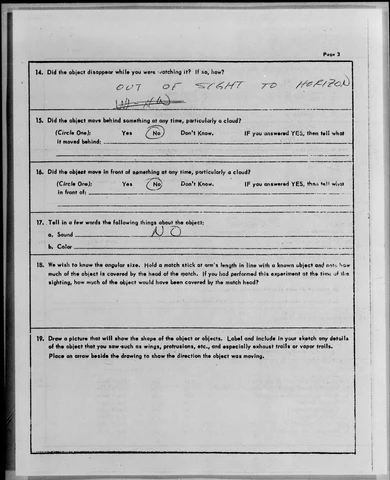 Page 3
14. Did the object disappear while you were watching it? If so, how?
OUT OF SIGHT TO HORIZON
15. Did the object move behind something at any time, particularly a cloud?
(Circle One): Yes No Don't Know. IF you answered YES, then tell what
it moved behind:
16. Did the object move in front of something at any time, particularly a cloud?
(Circle One): Yes No Don't Know. IF you answered YES, then tell what
in front of:
17. Tell in a few words the following things about the object:
a. Sound NO
b. Color
18. We wish to know the angular size. Hold a match stick at arm's length in line with a known object and note how
much of the object is covered by the head of the match. If you had performed this experiment at the time of the
sighting, how much of the object would have been covered by the match head?
19. Draw a picture that will show the shape of the object or objects. Label and include in your sketch any details
of the object that you saw such as wings, protrusions, etc., and especially exhaust trails or vapor trails.
Place an arrow beside the drawing to show the direction the object was moving.